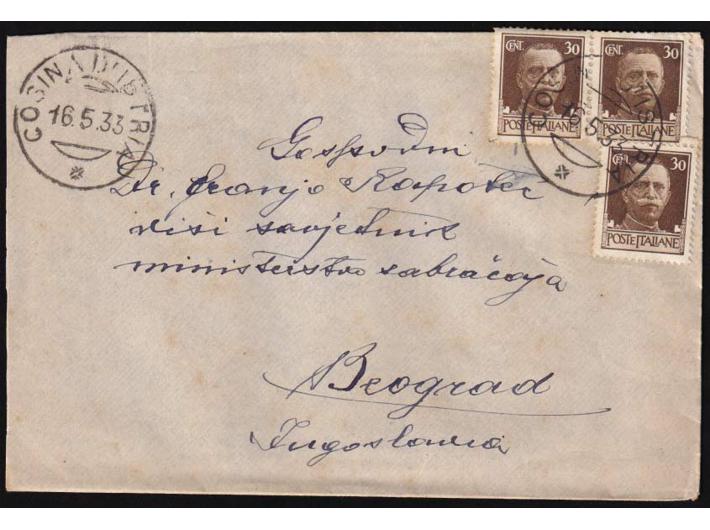 COSINA D'ISTRIA
16.5.33
CENT. 30
POSTE ITALIANE
CENT. 30
POSTE ITALIANE
CO ISTRIA
16.5.33
CENT. 30
POSTE ITALIANE
Gospodin
Dr. Franjo
viši savjetnik
ministerstvo sabračaja
Beograd
Jugoslavia